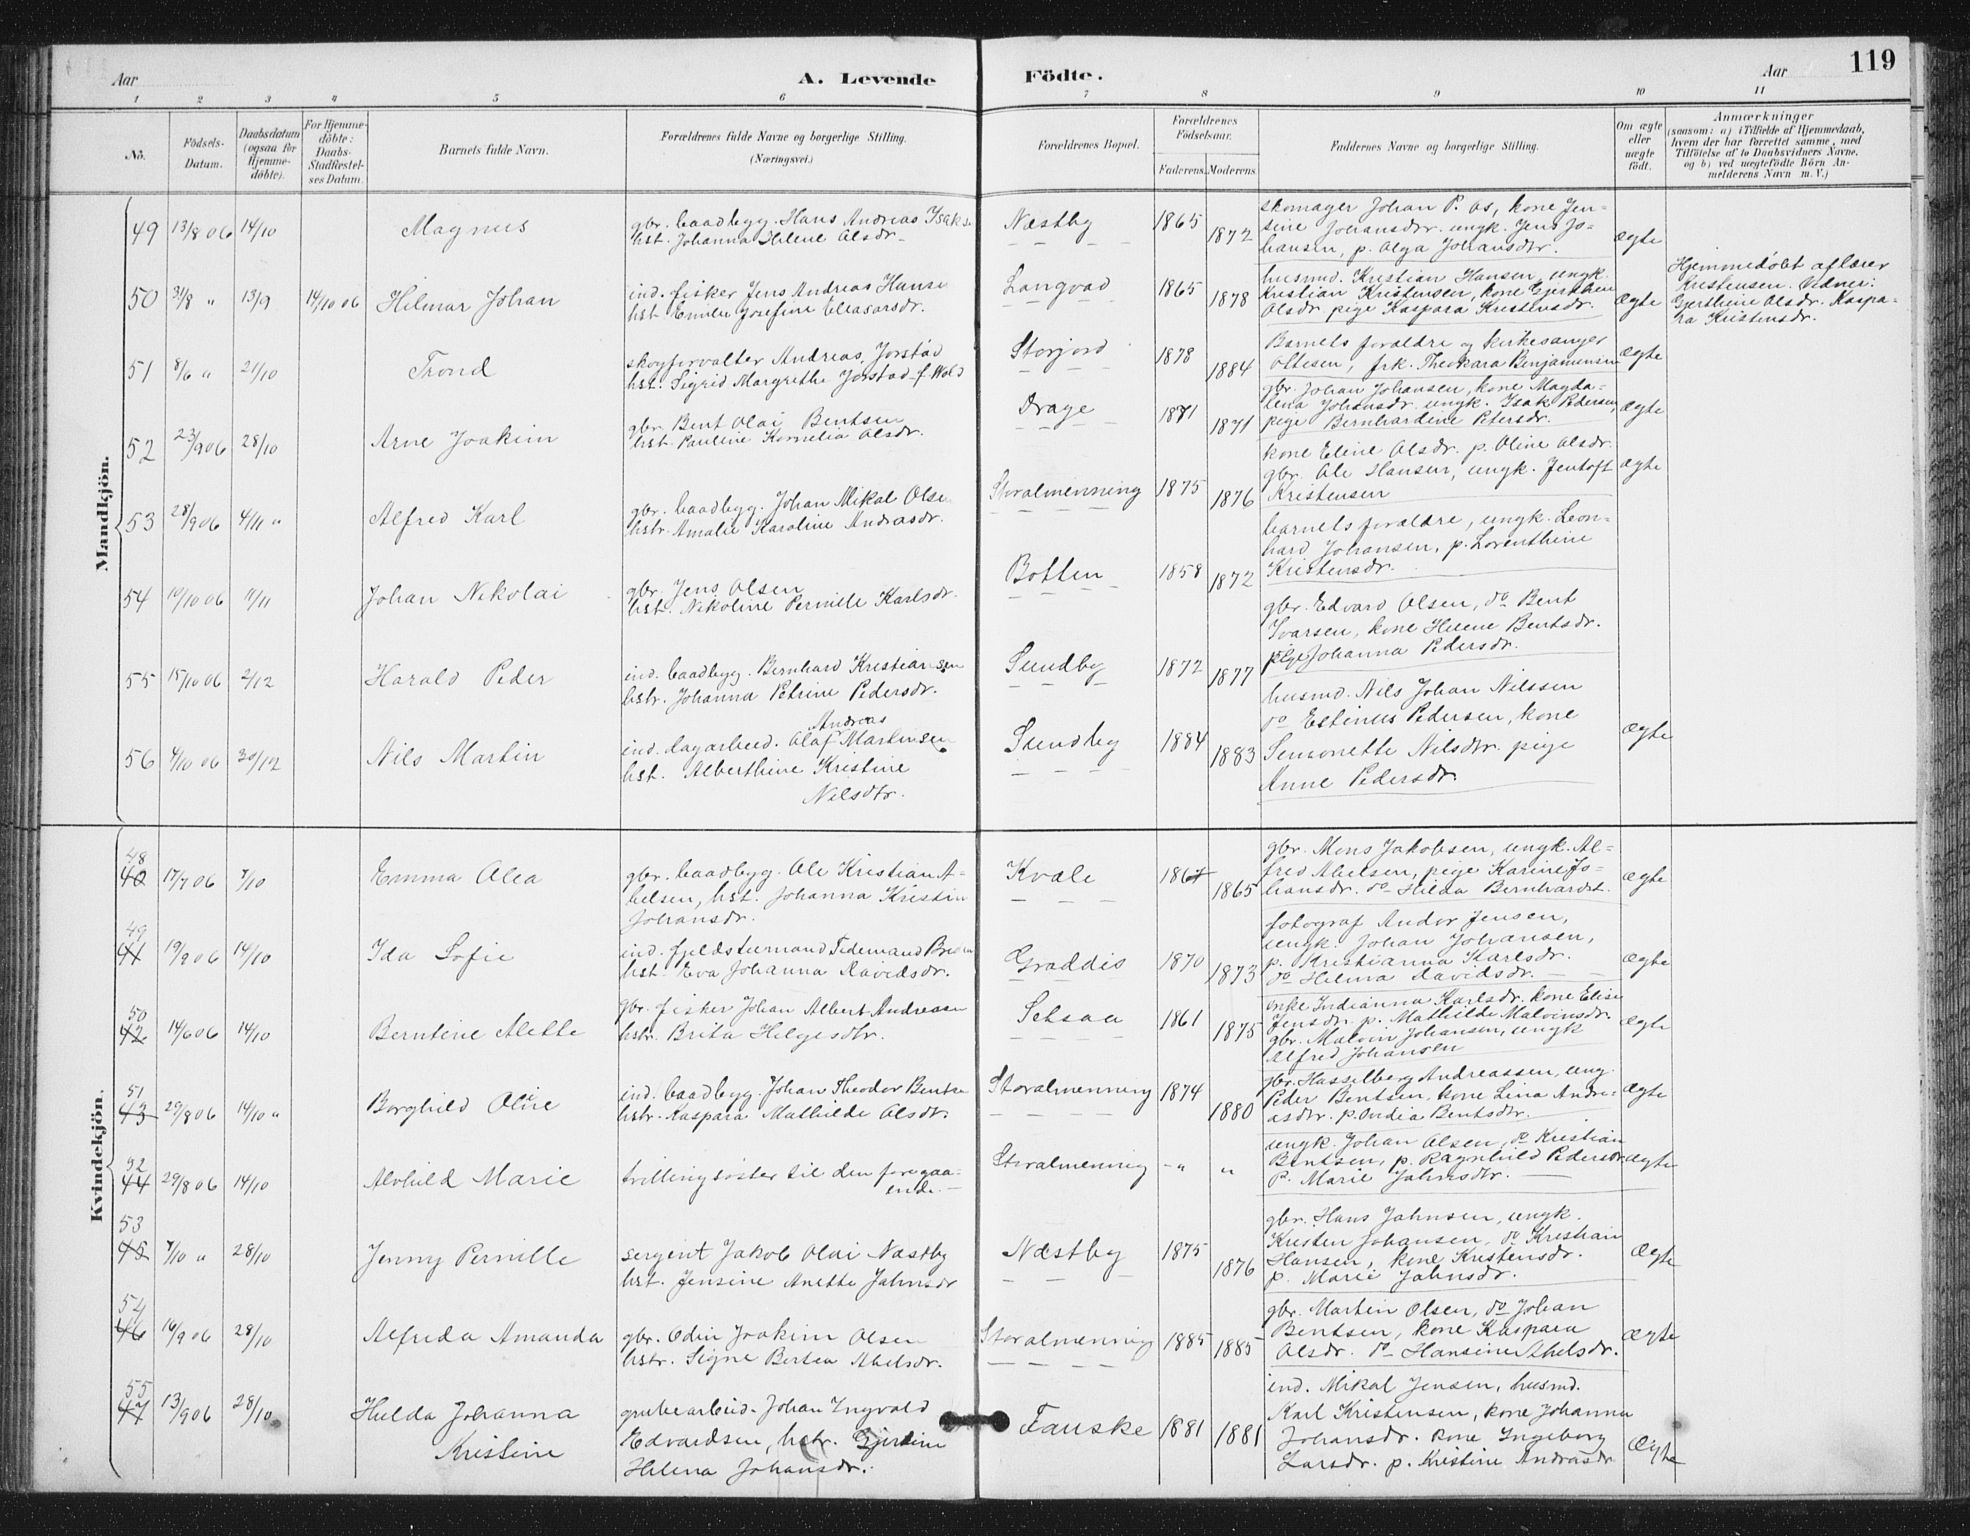 Aar
A. Levende Födte.
Aar
119
1 2 3 4 5 6 7 8 9 10 11
No.
Födsels-Datum.
Daabsdatum (ogsaa for Hjemme-döbte).
For Hjemme-döbte: Daabs-Stadfæstel-ses Datum.
Barnets fulde Navn.
Forældrenes fulde Navne og borgerlige Stilling.
(Næringsvei.)
Forældrenes Bopæl.
Forældrenes Födselsaar.
Faderens. Moderens.
Faddernes Navne og borgerlige Stilling.
Om ægte eller uægte födt.
Anmærkninger
(saasom: a) i Tilfælde af Hjemmedaab,
hvem der har forrettet samme, med
Tilföielse af to Daabsvidners Navne,
og b) ved uægtefödte Börn An-
melderens Navn m. V.)
Mandkjön.
49 13/8 06 14/10 Magnus
gbr. baadbygg. Hans Andreas Isakse
hst. Johanna Helene Olsdr.
Næstby 1865 1872
skomager Johan P. os, kone Jen-
sine Johansdtr. ungk. Jens Jo-
hansen, p. Olga Johansdtr.
ægte
50 31/8 " 13/9 14/10 06 Hilmar Johan
ind. fisker Jens Andreas Hanse
hst. Emilie Josefine Eleasarsdr.
Langvad 1865 1878
husmd. Kristian Hansen, ungk.
Kristian Kristensen, kone
Olsdr. pige Kaspara Kristensdr.
ægte
Hjemmedöbt af lærer
Kristensen. Vidner:
Gjerthine Olsdr. Kaspa-
ra Kristensdr.
51 8/6 " 21/10 Trond
skogforvalter Andreas Jorstad
hst. Sigrid Margrethe Jorstad f. Wold
Storjord 1878 1884
Barnets forældre og kirkesanger
Ottesen, frk. Theokara Benjaminsen
ægte
52 23/9 06 28/10 Arne Joakim
gbr. Bent Olai Bentsen
hst. Pauline Kornelia Olsdr.
Drage 1871 1871
gbr. Johan Johansen, kone Magda-
lena Johansdr. ungk. Isak Pedersen,
pige Bernhardine Petersdr.
ægte
53 28/9 06 4/11 " Alfred Karl
gbr. baadbygg. Johan Mikal Olse
hstr. Amalie Karoline Andrasdr.
Storalmenning 1875 1876
kone Eline Olsdr. p. Oline Olsdr.
gbr. Ole Hansen, ungk. Jentoft
Kristensen
ægte
54 19/10 06 11/11 Johan Nikolai
gbr. Jens Olsen
hst. Nikoline Pernille Karlsdr.
Botten 1858 1872
barnets forældre, ungk. Leon-
hard Johansen, p. Lorenthine
Kristensdr.
55 15/10 06 2/12 Harald Peder
ind. baadbygg. Bernhard Kristiansen
hstr. Johanna Petrine Pedersdr.
Sundby 1872 1877
gbr. Edvard Olsen, do Bent
Ivarsen, kone Helene Bentsdr.
pige Johanna Pedersdr.
56 4/10 06 30/12 Nils Martin
Andreas
ind. dagarbeid. Olaf Martinsen
hst. Alberthine Kristine
Nilsdtr.
Sundby 1884 1883
husmd. Nils Johan Nilssen
do Estinus Pedersen, kone
Simonette Nilsdtr. pige
Anne Pedersdr.
ægte
Kvindekjön.
48
40 17/7 06 7/10 Emma Olea
gbr. baadbygg. Ole Kristian A-
belsen, hst. Johanna Kristin
Johansdr.
Kvale 1867 1865
gbr. Mons Jakobsen, ungk. Al-
fred Abelsen, pige Karine Jo-
hansdr. do Hilda Bernhardst.
ægte
49
41 19/8 06 14/10 Ida Sofie
ind. fjeldstuemand Tidemand
hst. Eva Johanna Davidsdr.
Graddis 1870 1873
fotograf Andor Jensen,
ungk. Johan Johansen,
p. Kristianna Karlsdr.
do Helma Davidsdr.
ægte
50
42 14/6 06 14/10 Berntine Alette
gbr. fisker Johan Albert Andreasen
hstr. Brita Helgesdtr.
Setsaa 1861 1875
enke Indianna Karlsdr. kone Elise
Jensdr. p. Mathilde Malvinsdr.
gbr. Malvin Johansen, ungk
Alfred Johansen
ægte
51
43 29/8 06 14/10 " Borghild Olive
ind. baadbygg. Johan Theodor Bentse
hstr. Kaspara Mathilde Olsdtr.
Storalmenning 1874 1880
gbr. Hasselberg Andreassen, ung.
Peder Bentsen, kone Lina Andre-
asdtr. p. Ovidia Bentsdtr.
ægte
52
44 29/8 06 14/10 Alvhild Marie
tvillingsöster til den foregaa-
ende.
Storalmenning - " "
ungk. Johan Olsen, do Kristian
Bentsen, p. Ragnhild Pedersdr
P. Marie Jahnsdtr.
ægte
53
45 7/10 " 28/10 Jenny Pernille
sergent Jakob Olai Næstby
hst. Jensine Anette Jahnsdr
Næstby 1875 1876
gbr. Hans Jahnsen, ungk.
Kristen Johansen, do Kristian
Hansen, kone Kristensdr.
p. Marie Jahnsdr.
ægte
54
46 16/9 06 28/10 Alfreda Amanda
gbr. Odin Joakim Olsen
hstr. Signe Bertea Abelsdr.
Storalmenning 1885 1885
gbr. Martin Olsen, do Johan
Bentsen, kone Kaspara
Olsdr. do Hansine Abelsdr.
ægte
55
47 13/9 06 28/10 Hulda Johanna
Kristine
grubearbeid. Johan Ingvald
Edvardsen, hstr. Gjertine
Helena Johansdr.
Fauske 1881 1881
ind. Mikal Jensen, husmd.
Karl Kristensen, kone Johanna
Johansdr. kone Ingeborg
Larsdr. p. Kristine Andrasdr
ægte